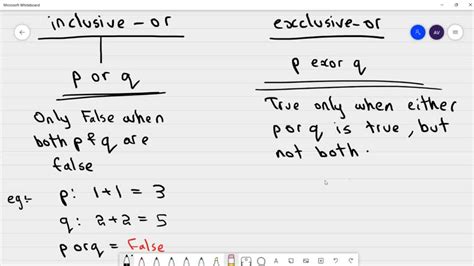 Microsoft Whiteboard
inclusive-or
p or q
Only False when
both p & q are
false
eg:- p: 1+1 = 3
q: 2+2 = 5
p orq = False
exclusive-or
p exor q
True only when either
p or q is true, but
not both.
AV